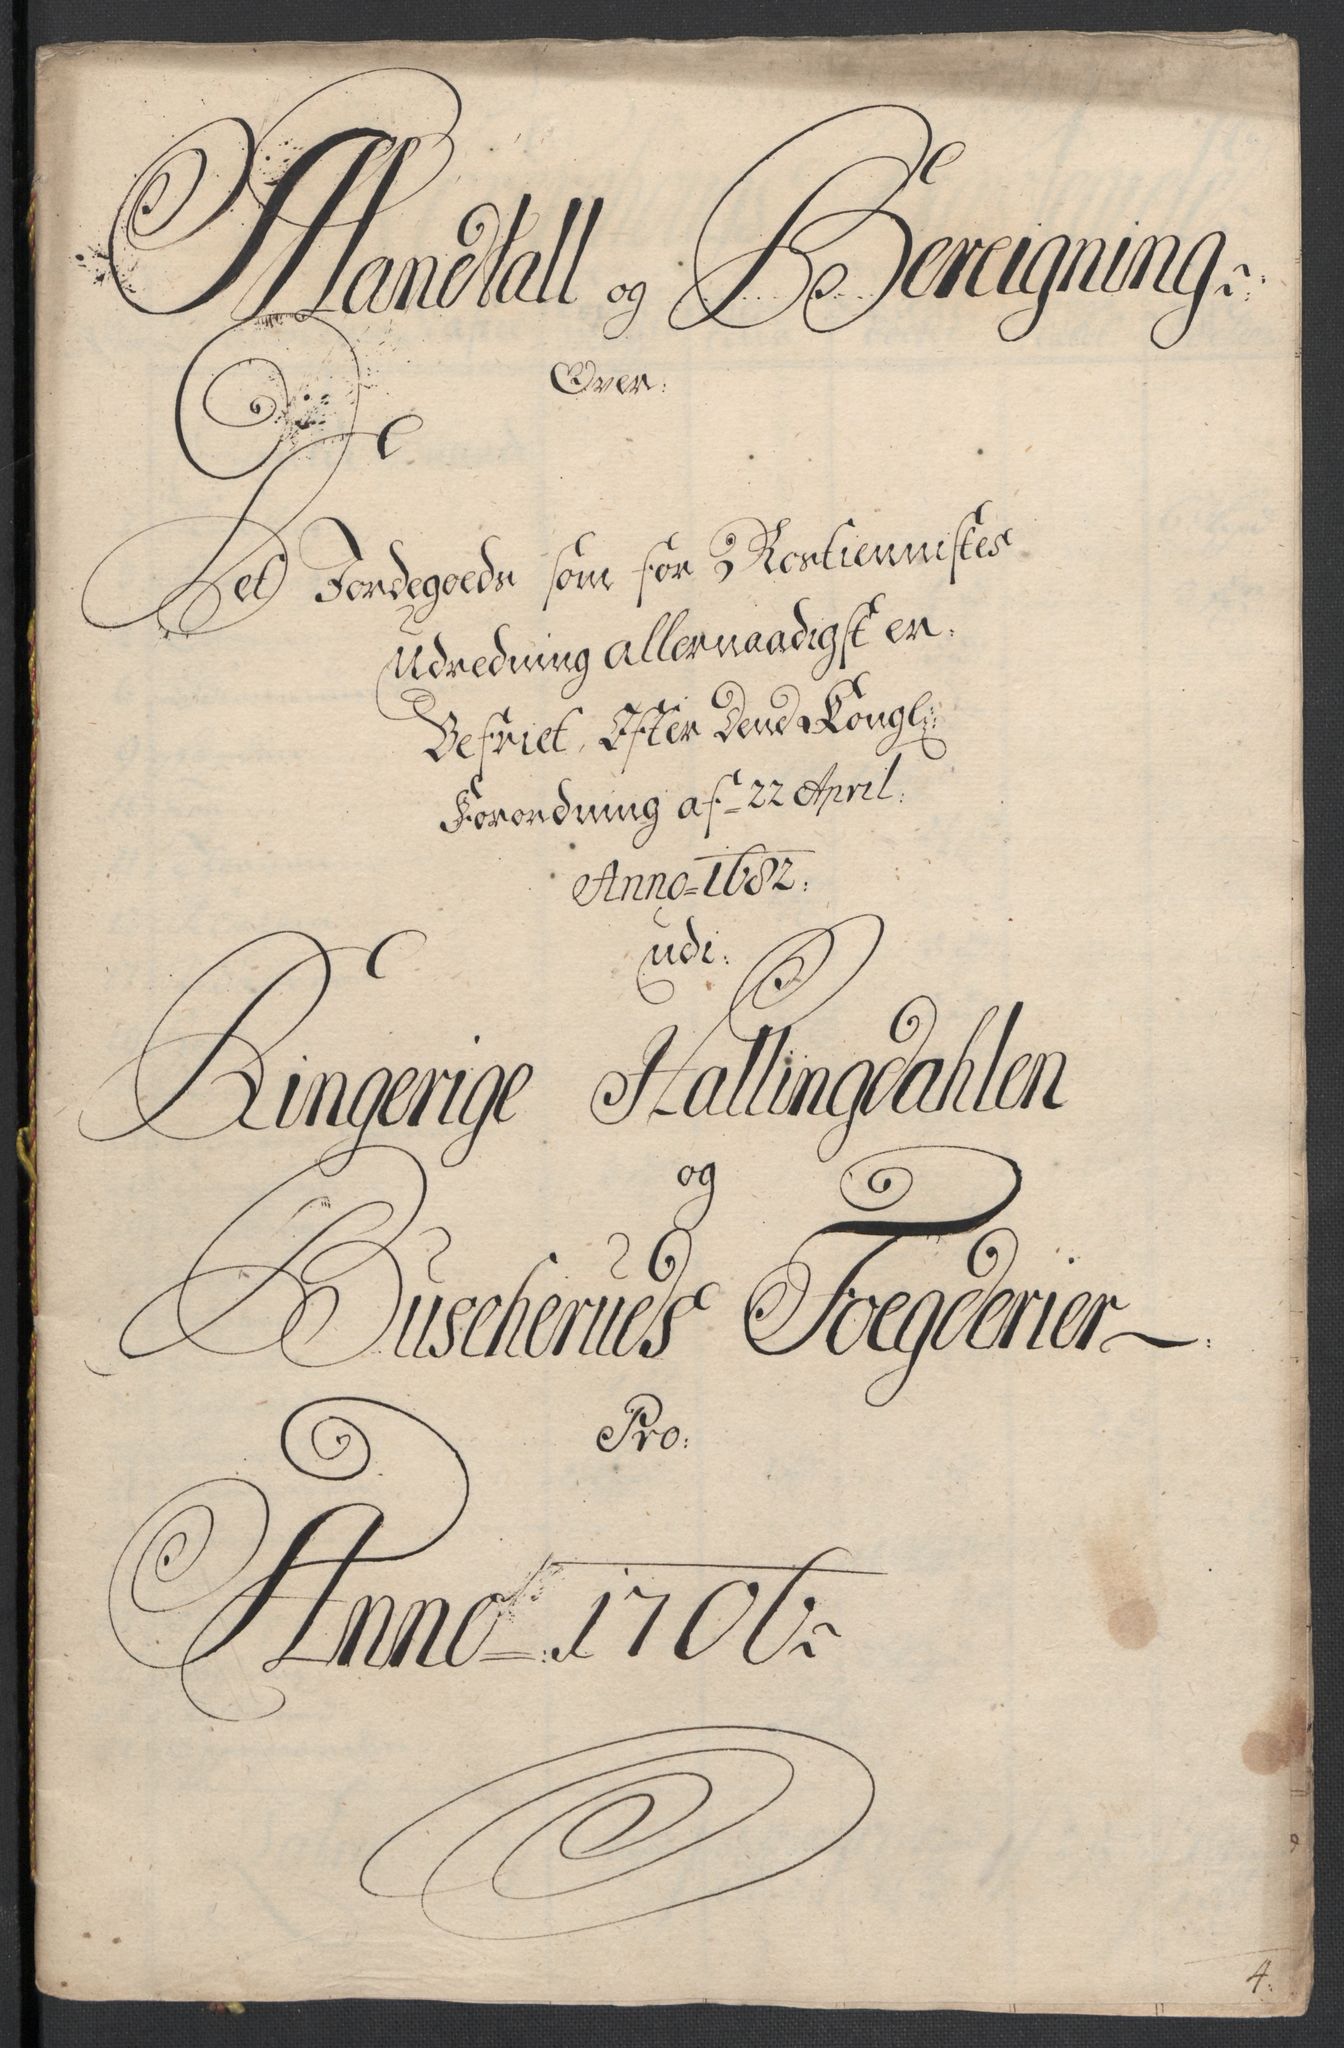 Mandtall og Bereigning
Over:
Det Jordegoeds som for Rostiennistes
Udredning allernaadigst er
Befriet, Efter Dend Kongl:
Forordning af 22 April.
Anno 1682:
udi:
Ringerige Hallingdahlen
og
Buscheruds Foegderier
Pro:
Anno 1706
4.